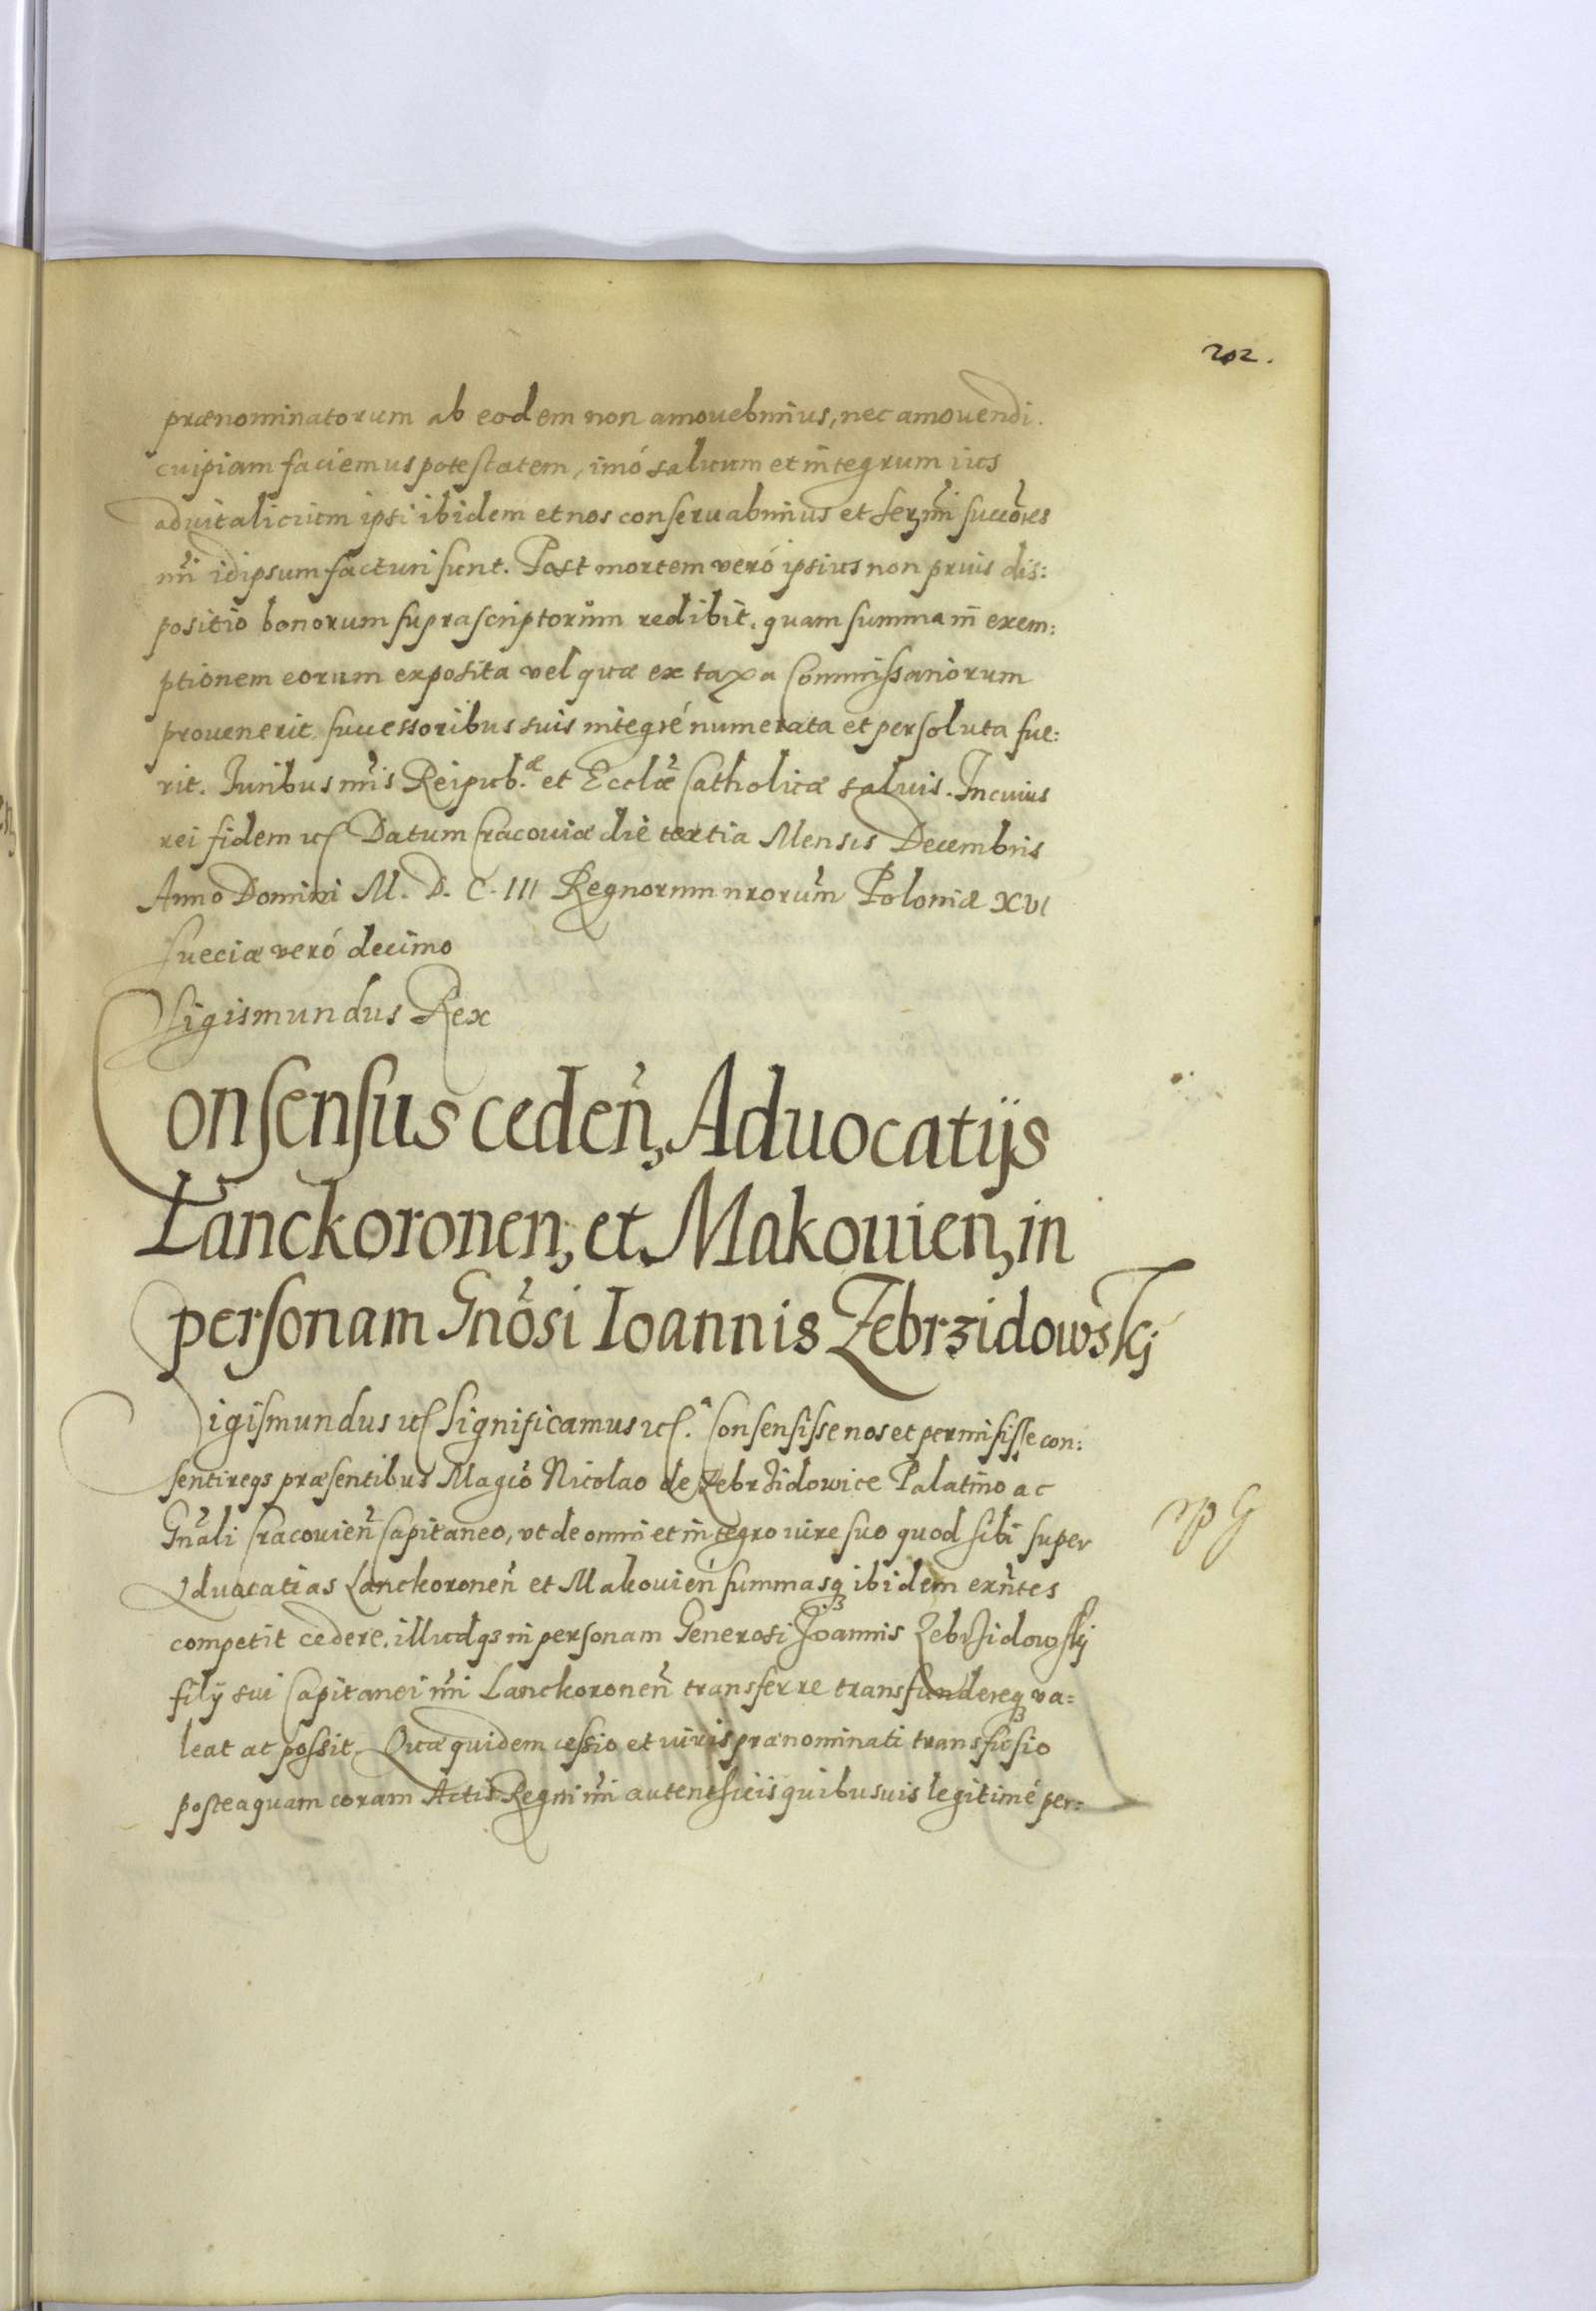 202.
prænominatorum ab eodem non amouebimus, nec amouendi.
cuipiam faciemus potestatem, imó saluum et integrum ius
aduitalicium ipsi ibidem et nos conseruabimus et Serm̃i succõres
nr̃i idipsum facturi sunt. Post mortem veró ipsius non prius dis:
positio bonorum suprascriptorum redibit, quam summa in exem:
ptionem eorum exposita vel quæ ex taxa Commissariorum
prouenerit successoribus suis integré numerata et persoluta fue:
rit. Iuribus nr̃is Reipub.æ et Ecclæ̃ Catholicæ saluis. In cuius
rei fidem etc Datum Cracouiæ die tertia Mensis Decembris
Anno Domini M. D. C. III Regnorum nrorum̃ Poloniæ XVI
Sueciæ veró decimo
Sigismundus Rex
Consensus cedeñ, Aduocatijs
Lanckoronen, et Makouien, in
personam Gnõsi Ioannis Zebrzidowskj
Sigismundus etc Significamus etc. Consensisse nos et permisisse con:
sentireqз præsentibus Magco Nicolao de Zebrzidowice Palatino ac
Gnãli Cracouieñ Capitaneo, vt de omni et integro iure suo quod sibi super
Aduocatias Lanckoroneñ et Makouień summasqз ibidem exñtes
competit cedere, illudqз in personam Generosi Joannis Zebrzidowskj
filij sui Capitanei nr̃i Lanckoroneñ transferre transfundereqз va=
leat at possit. Quæ quidem cessio et iuris prænominati transfusio
posteaquam coram Actis Regni nr̃i autenthicis quibusuis legitimé per: